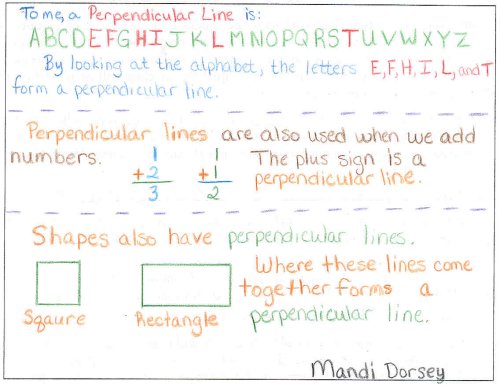 To me, a Perpendicular Line is:
ABCDEFGHIJKLMNOPQRSTUVWXYZ
By looking at the alphabet, the letters E, F, H, I, L, and T
form a perpendicular line.
Perpendicular lines are also used when we add
numbers.
1
+2
3
1
+1
2
The plus sign is a
perpendicular line.
Shapes also have perpendicular lines.
Sqaure
Rectangle
Where these lines come
together forms a
perpendicular line.
Mandi Dorsey